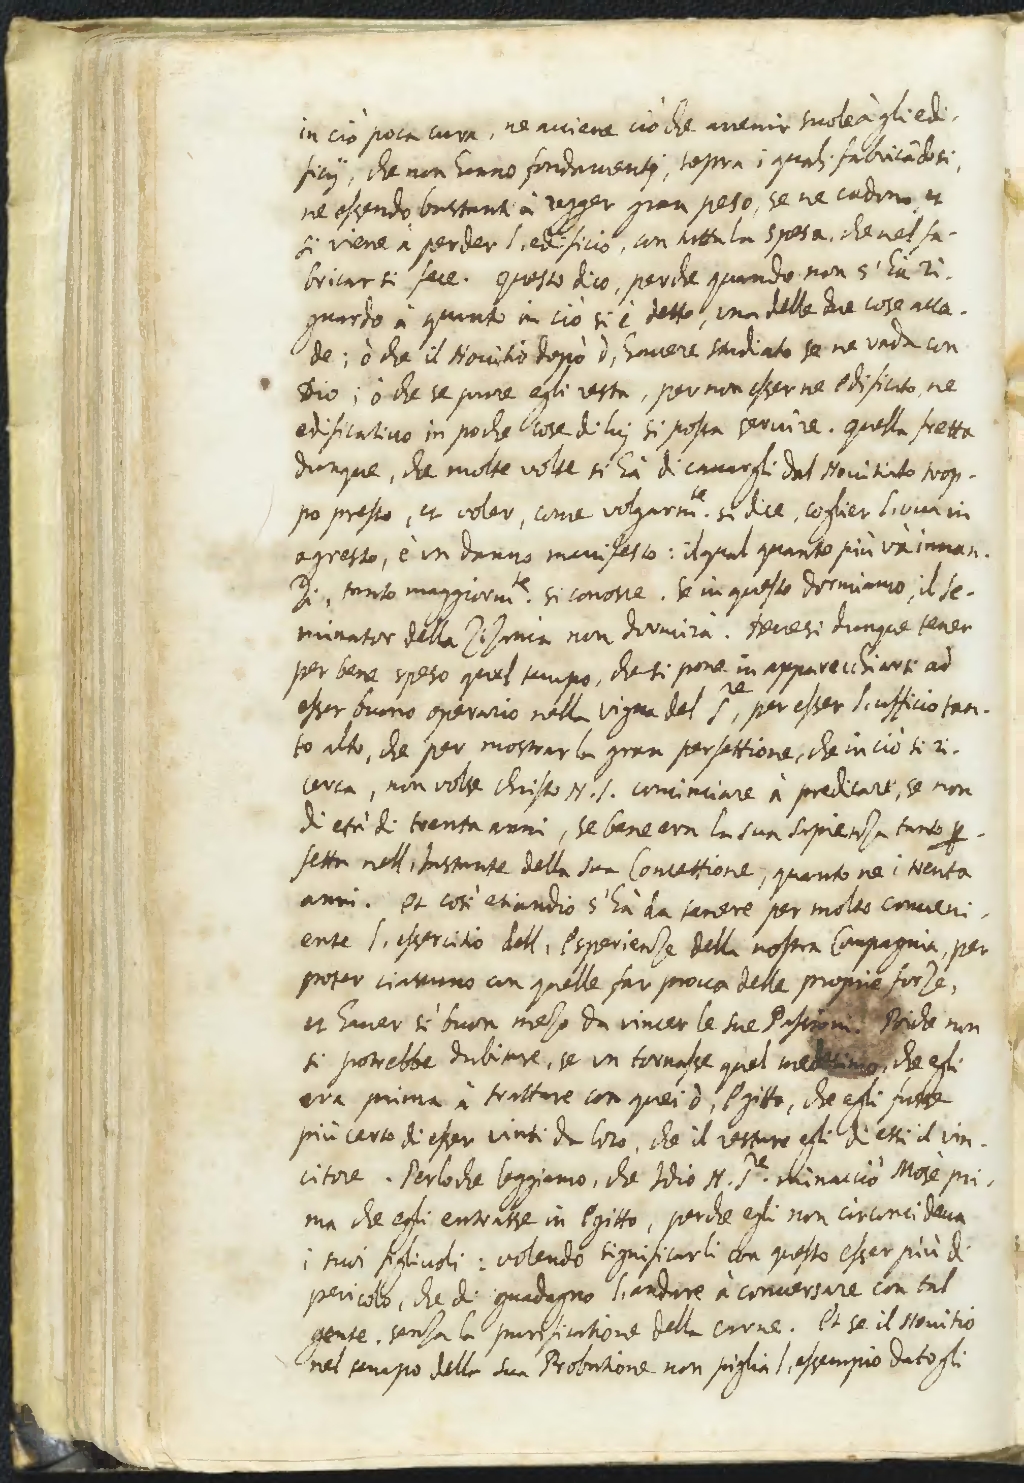 in ciò poca cura, ne auiene ciò che auenir suole à gli edi-
ficij, che non hanno fondamenti, sopra i quali fabricãdosi,
ne essendo bastanti à regger gran peso, se ne cadono, et
si viene à perder l'edificio, con tutta la spesa, che nel fa-
bricar si fece. Questo dico, perche quando non s'hà ri-
guardo à quanto in ciò si è detto, una delle due cose acca-
de; ò che il Nouitio dopò d'hauere studiato se ne vada con
Dio; ò che se pure egli resta, per non esserne edificato, ne
edificatiuo in poche cose di lui si possa seruire. Quella fretta
dunque, che molte volte si hà di cauargli dal Nouitiato trop-
po presto, et voler, come volgarm.te si dice, coglier l'uua in
agresto, è un danno manifesto: il qual quanto più và innan-
zi, tanto maggiorm.te si conosce. Se in questo dormiamo, il se-
minator della zizania non dormirà. Deuesi dunque tener
per bene speso quel tempo, che si pone in apparecchiarsi ad
esser buono operario nella vigna del S.re, per esser l'ufficio tan-
to alto, che per mostrar la gran perfettione, che in ciò si ri-
cerca, non volse Christo N.S. cominciare à predicare, se non
di età di trenta anni, se bene era la sua sapienza tanto ꝑ-
fetta nell'Instante della sua Concettione, quanto ne i trenta
anni. Et così etiandio s'hà da tenere per molto conueni-
ente l'essercitio dell'Esperienze della nostra Compagnia, per
poter ciascuno con quelle far proua delle proprie forze,
et hauer sì buon mezo da vincer le sue Passioni. Poiche non
si potrebbe dubitare, se un tornasse quel medesimo, che egli
era prima à trattare con quei d'Egitto, che egli fusse
più certo di esser vinti da loro, che il restare egli di essi il vin-
citore. Perloche leggiamo, che Idio N.S.re minacciò Mosè pri-
ma che egli entrasse in Egitto, perche egli non circoncideua
i suoi figliuoli: volendo significarli con questo esser più di
pericolo, che di guadagno l'andare à conuersare con tal
gente, senza la purificatione della carne. Et se il Nouitio
nel tempo della sua Probatione non piglia l'essempio datogli